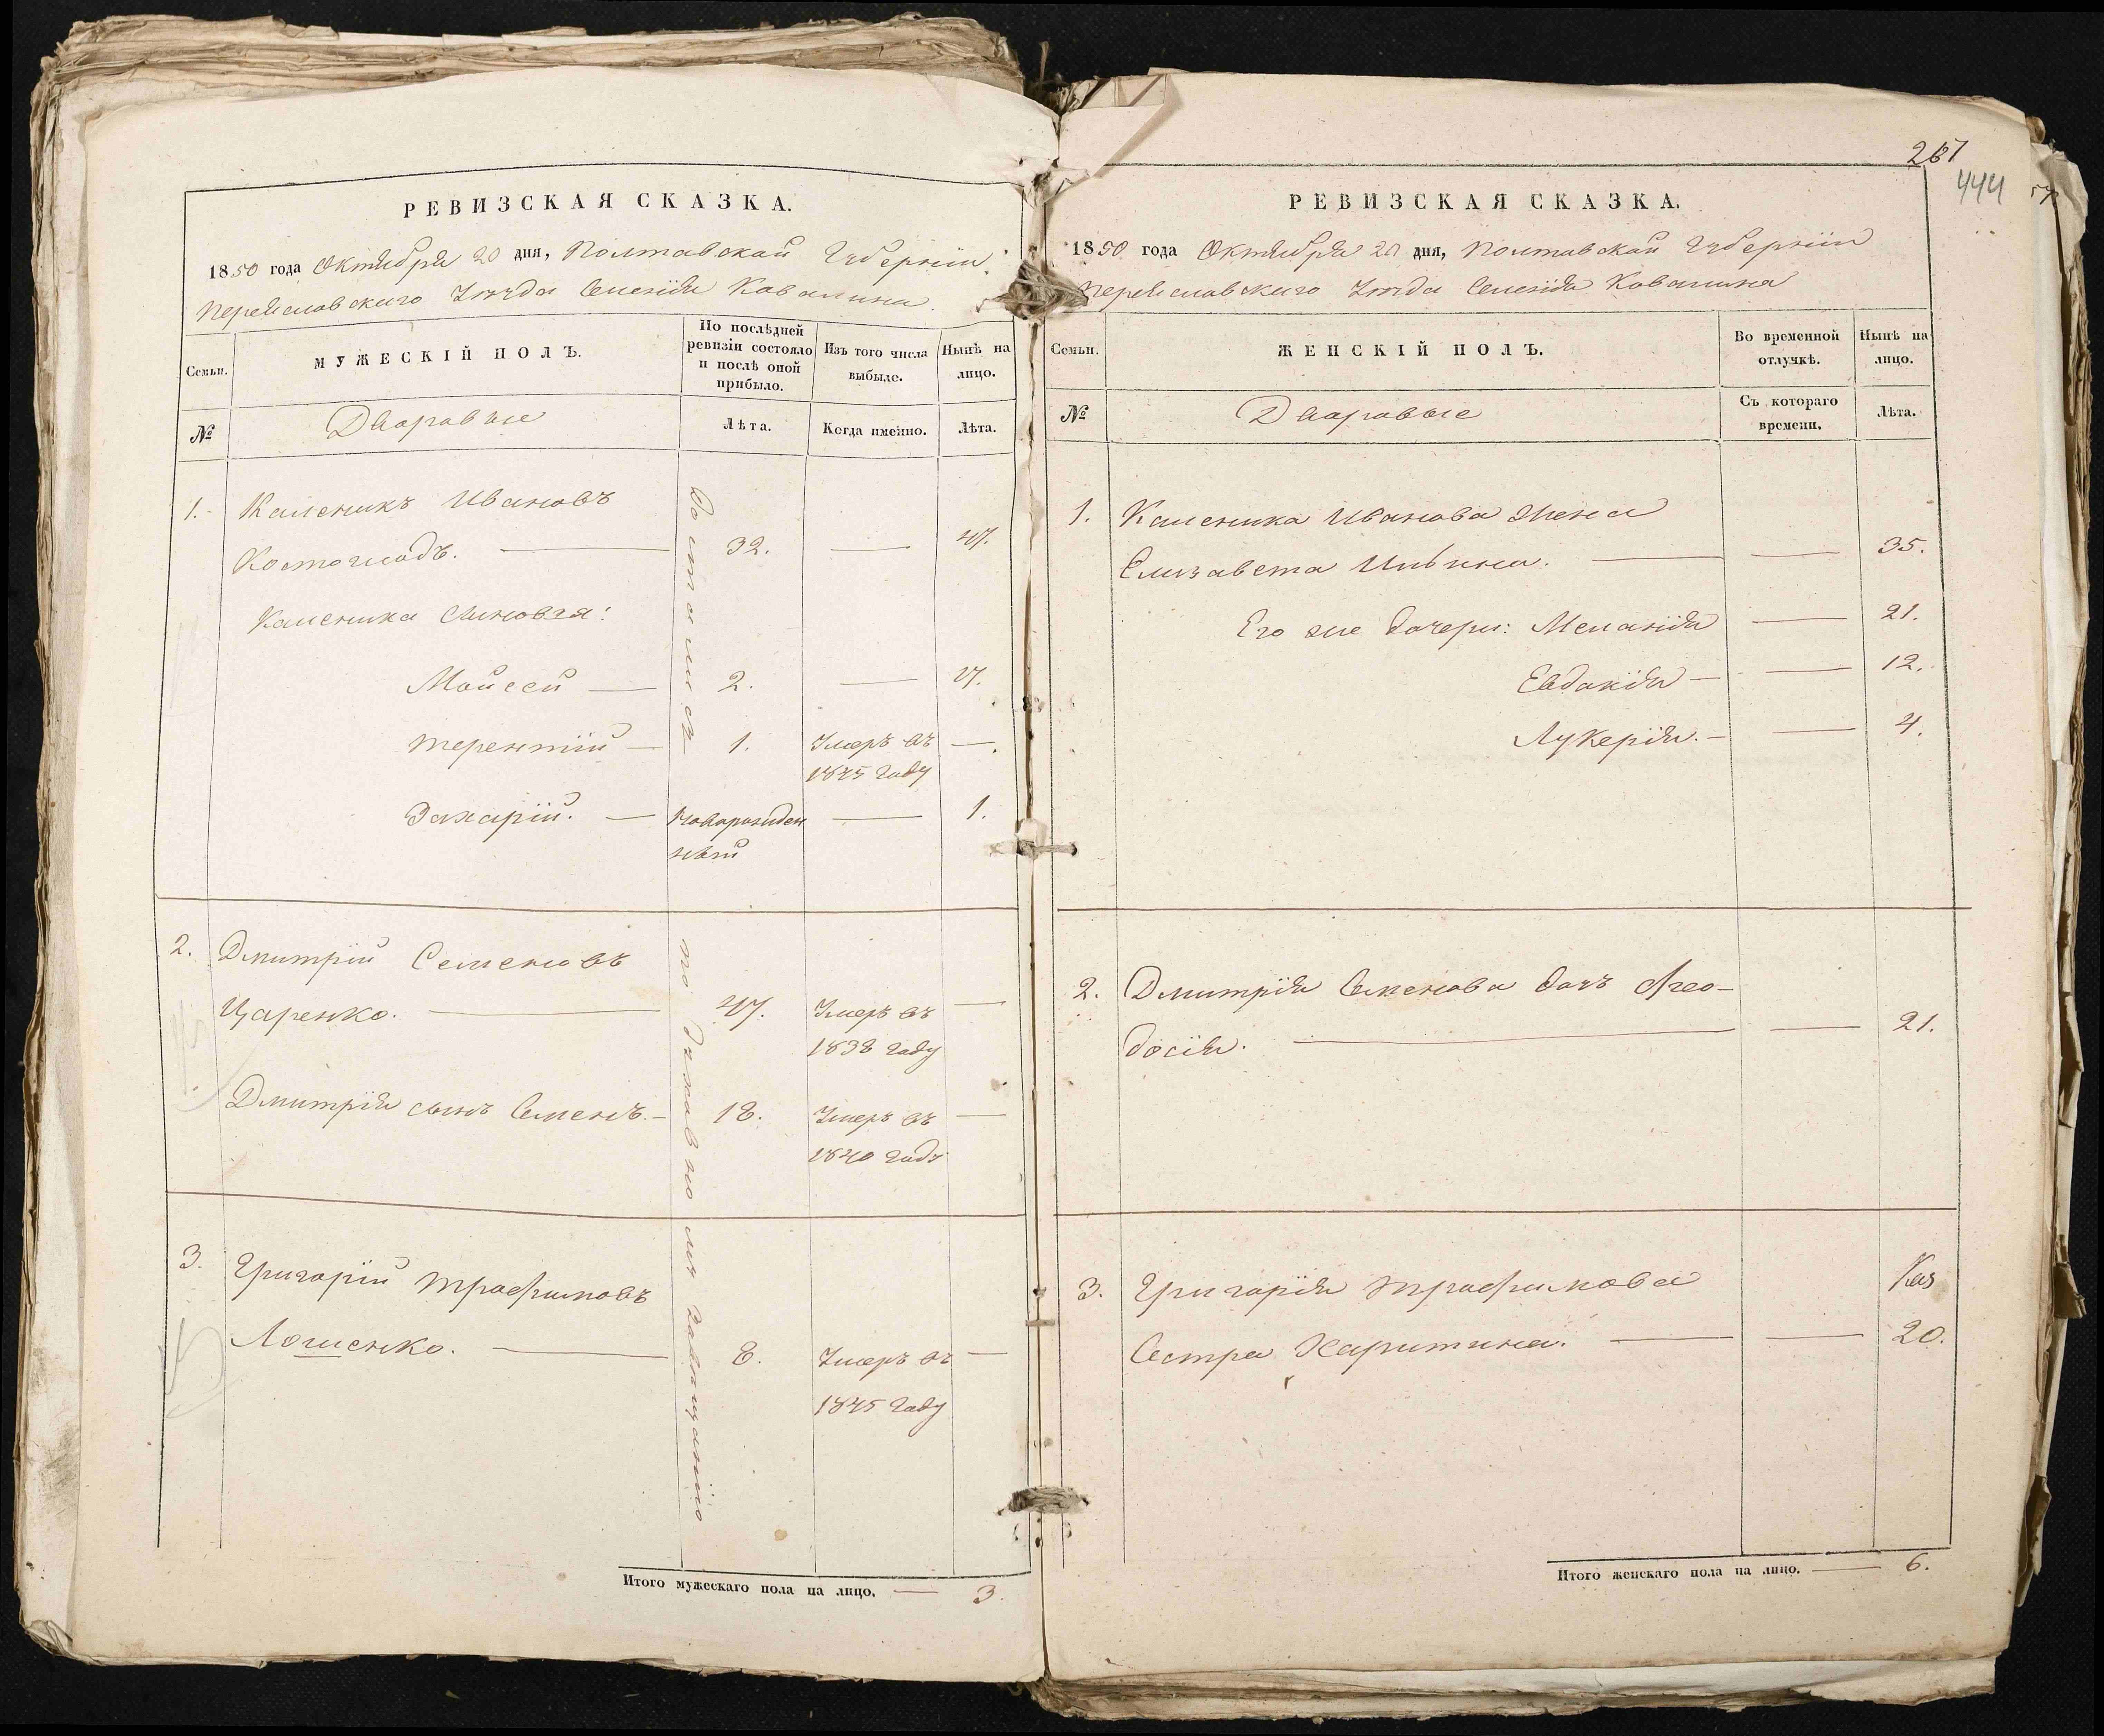 РЕВИЗСКАЯ СКАЗКА.
1850 года Октября 20 дня, Полтавской Губернїи
Переяславского Уѣзда Селенїя Ковалина
Семьи.
МУЖЕСКІЙ ПОЛЪ.
По послѣдней
ревизіи состояло
и послѣ оной
прибыло.
Изъ того числа
выбыло.
Нынѣ на
лицо.
№
Дворовые
Лѣта.
Когда именно.
Лѣта.
1. Каленикъ Ивановъ
Костоглодъ. — 32. — 47.
Каленика сыновья:
Мойсей — 2. — 17.
Терентїй — 1. Умеръ въ —.
1845 году
Захарїй. — Новорожден — 1.
ный
Досталися
2. Дмитрїй Семеновъ
Царенко. — 47. Умеръ въ —
1838 году
Дмитрїя сынъ Семенъ. — 18. Умеръ въ —
1840 году
3. Григорїй Трофимовъ
Логиенко. — 8. Умеръ въ —
1845 году
по духовному завещанїю
Итого мужескаго пола на лицо. — 3.
267
444
РЕВИЗСКАЯ СКАЗКА.
1850 года Октября 20 дня, Полтавской Губернїи
Переяславского Уѣзда Селенїя Ковалина
Семьи.
ЖЕНСКІЙ ПОЛЪ.
Во временной
отлучкѣ.
Нынѣ на
лицо.
№
Дворовые
Съ котораго
времени.
Лѣта.
1. Каленика Иванова жена
Елизавета — 35.
Его же дочери: Меланїя — 21.
Евдокїя — — 12.
Лукерїя. — — 4.
2. Дмитрїя Семенова дочь Фео-
досїя. — — 21.
3. Григорїя Трофимова
Сестра Харитина. — — 20.
Итого женскаго пола на лицо. — 6.